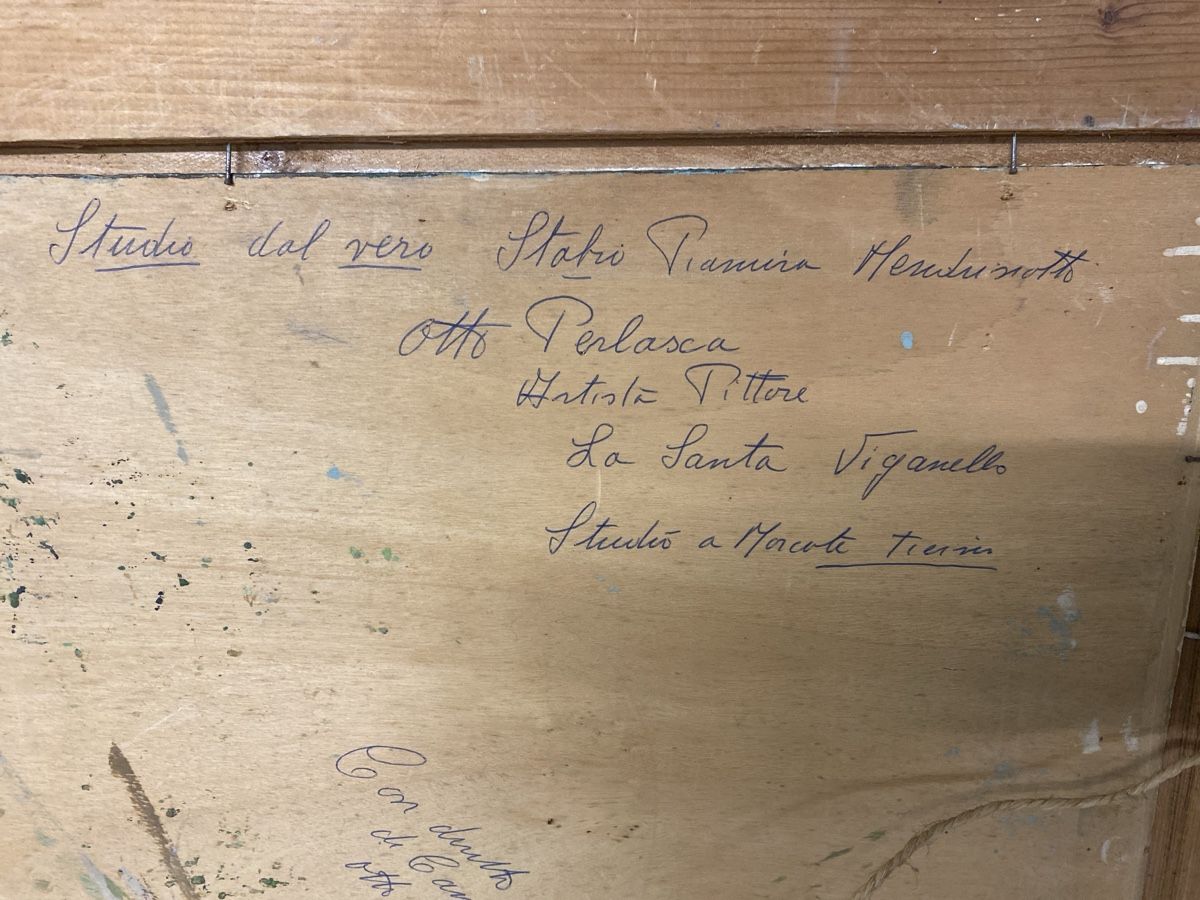 Studio dal vero Stabio Pianura Mendrisotto
Otto Perlasca
Artista Pittore
La Santa Viganello
Studio a Morcote Ticino
Con diritto
di
Otto